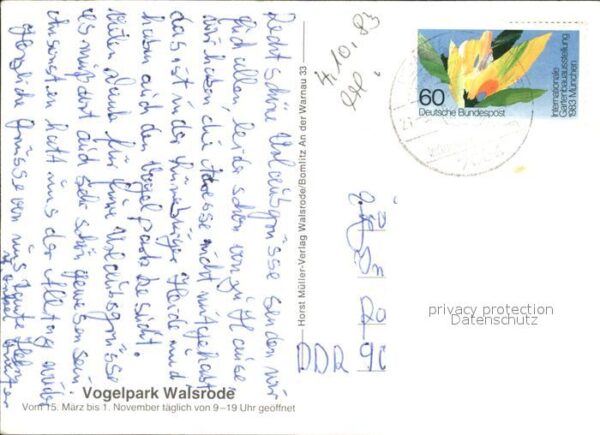 Recht schöne Urlaubsgrüsse senden wir
Euch allen, leider schon von zu Hause
wir haben die Adresse nicht mitgehabt
das ist in der Lüneburger Heide und
haben auch den Vogelpark besucht.
Vielen Dank für Eure Urlaubsgrüsse
es muß dort auch sehr schön gewesen sein
Ansonsten hat uns der Alltag wieder
Herzliche Grüsse von uns Tante
u. Onkel
4.10.83
60
Deutsche Bundespost
Internationale
Gartenbauausstellung
1983 München
Horst Müller-Verlag Walsrode/Bomlitz An der Warnau 33
DDR 90
privacy protection
Datenschutz
Vogelpark Walsrode
Vom 15. März bis 1. November täglich von 9–19 Uhr geöffnet